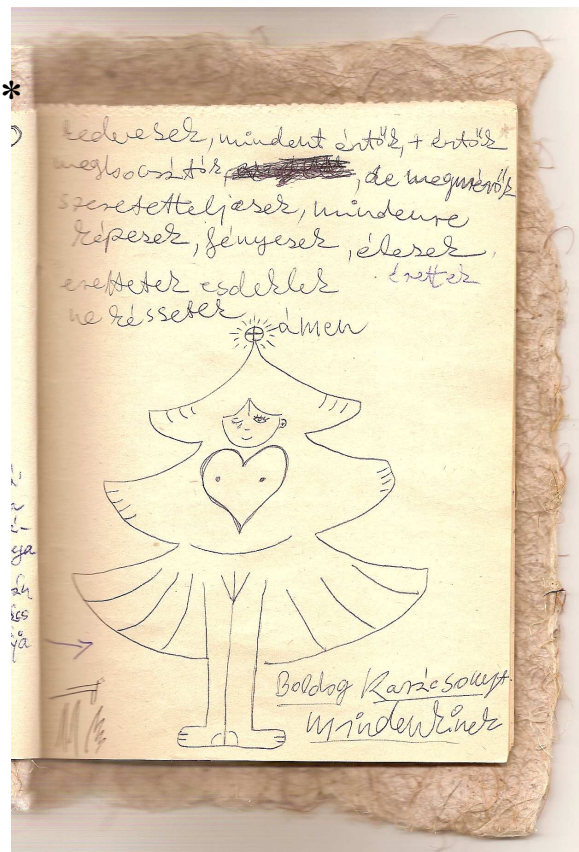 *
kedvesek, mindent értők, + értők
megbocsátók, de megmérők
szeretetteljesek, mindenre
képesek, fényesek, élesek
érettek
erettetek esdeklek
ne késsetek
ámen
ya
Boldog Karácsonyt
mindenkinek